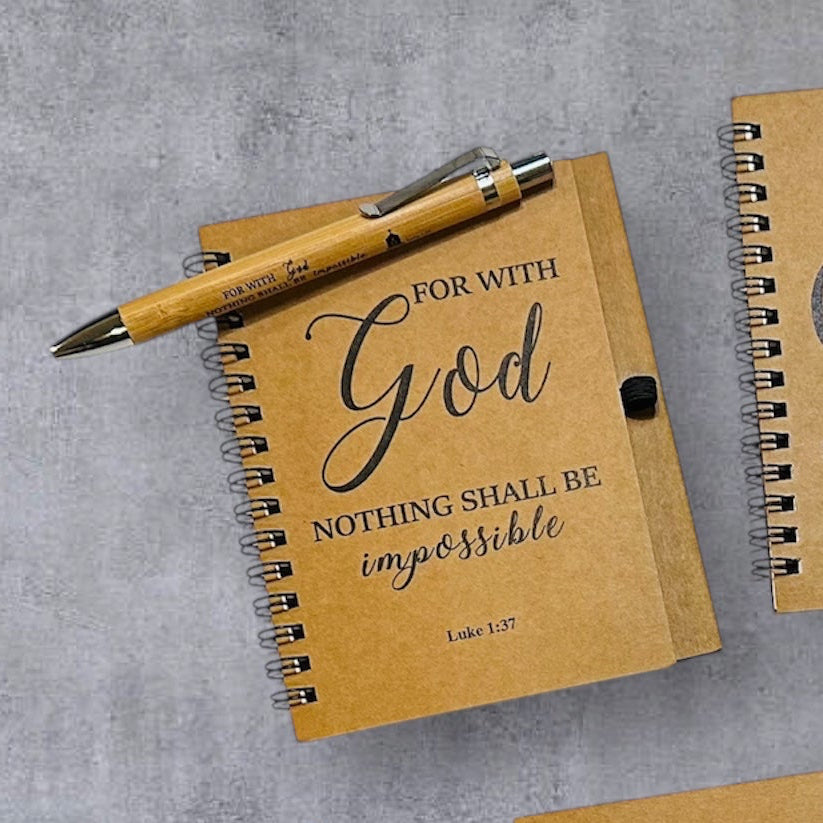 FOR WITH God
NOTHING SHALL BE impossible
FOR WITH
God
NOTHING SHALL BE
impossible
Luke 1:37